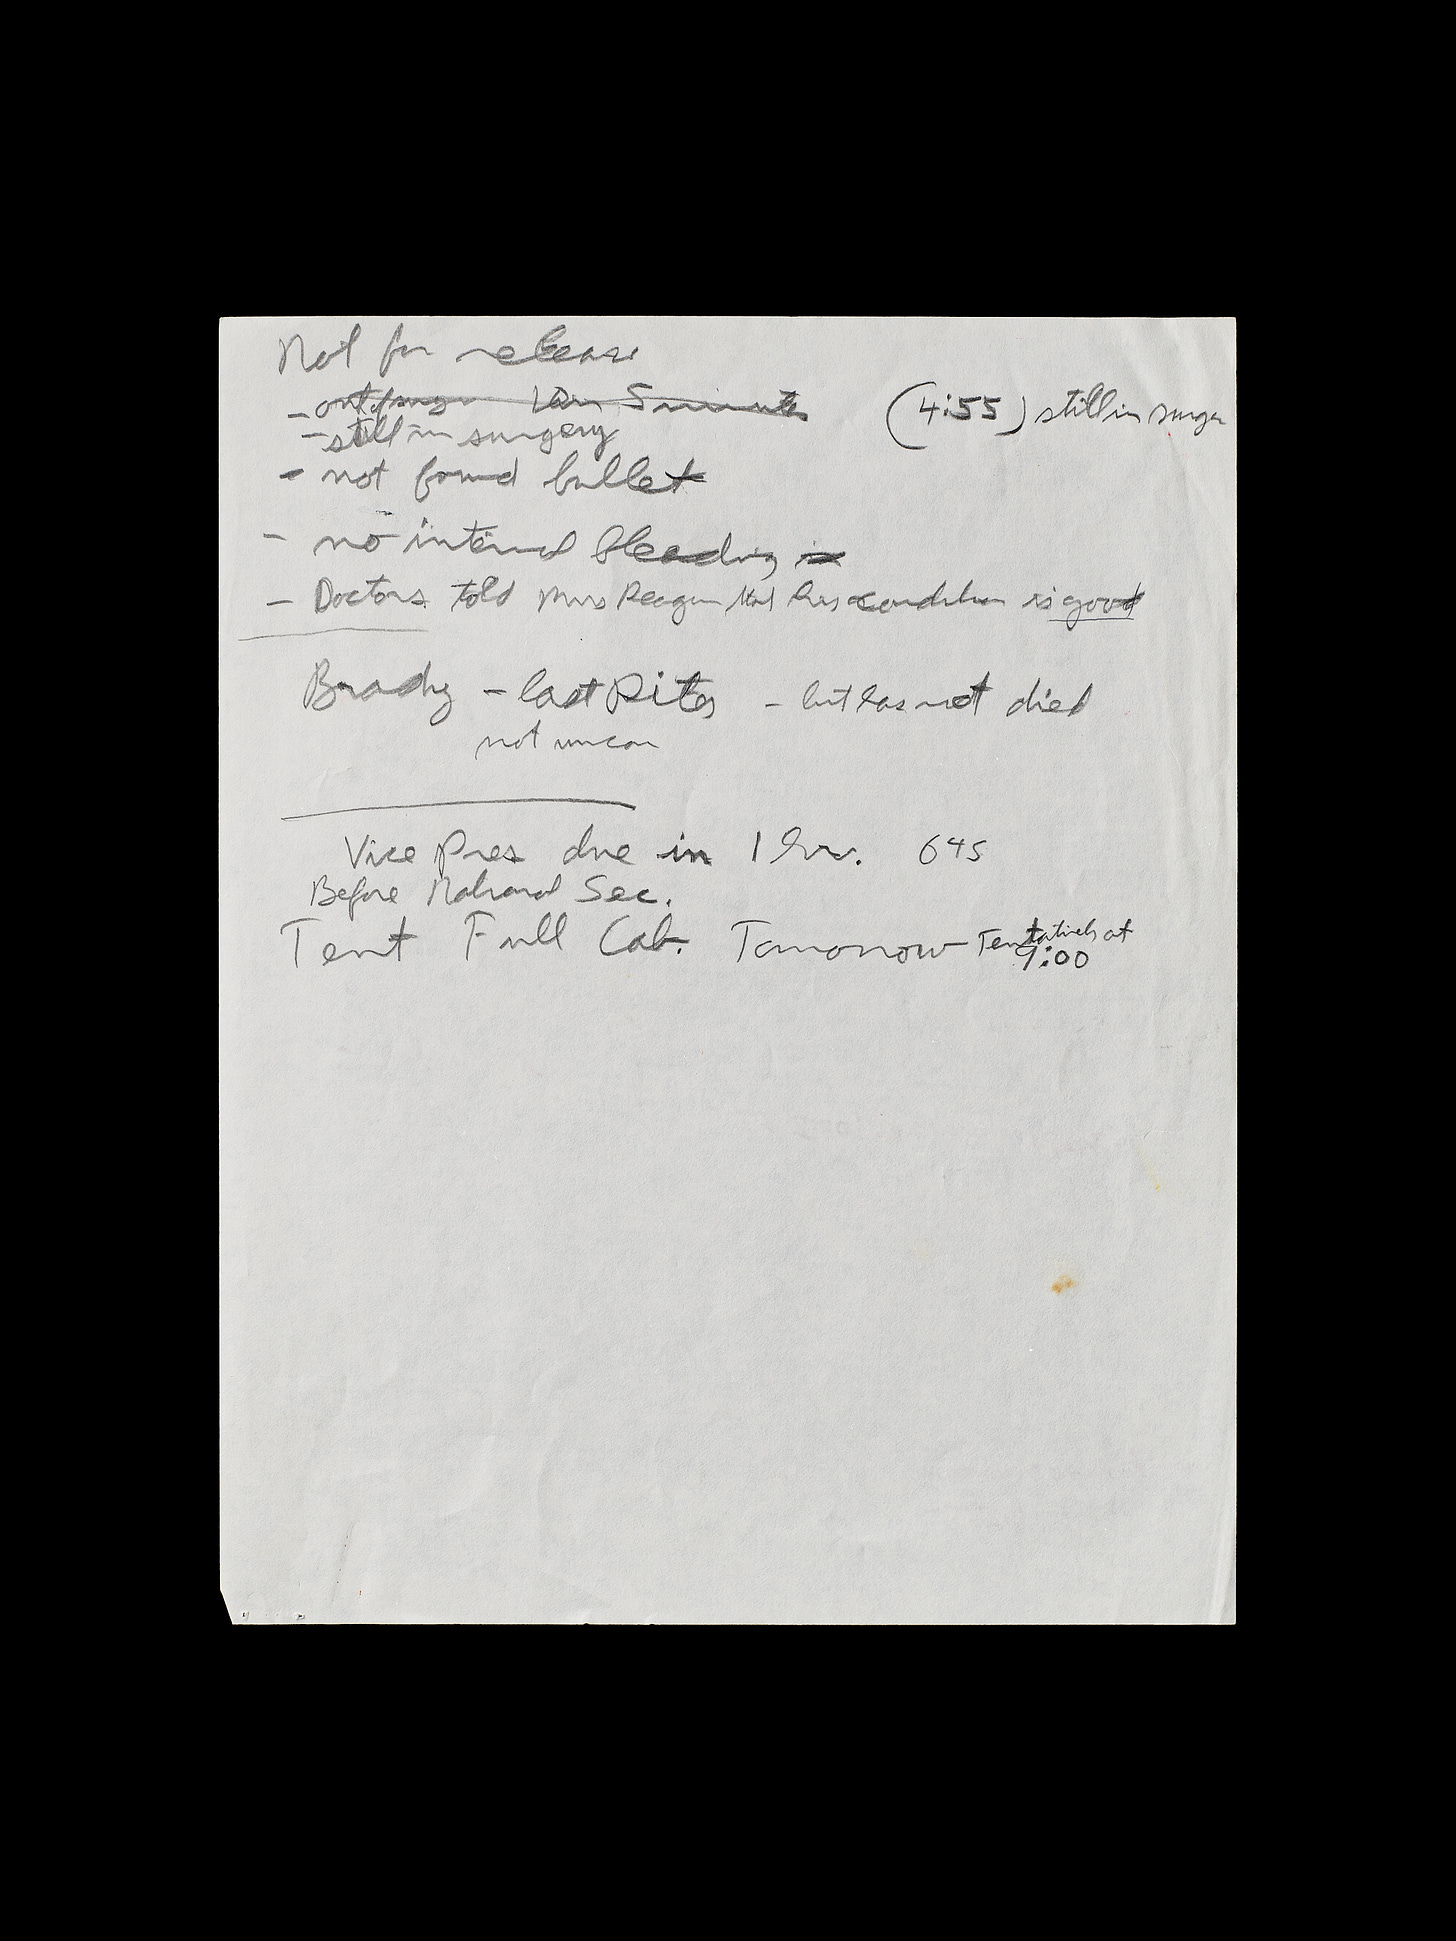 Not for release
- out of surgery 5 minutes (4:55) still in surger
- still in surgery
- not found bullet
- no internal bleeding
- Doctors told Mrs Reagan that Pres condition is good
Brady - last Rites - but has not died
not uncon
Vice Pres due in 1 hr. 645
Before National Sec.
Tent Full Cab. Tomorrow Tentatively at
9:00